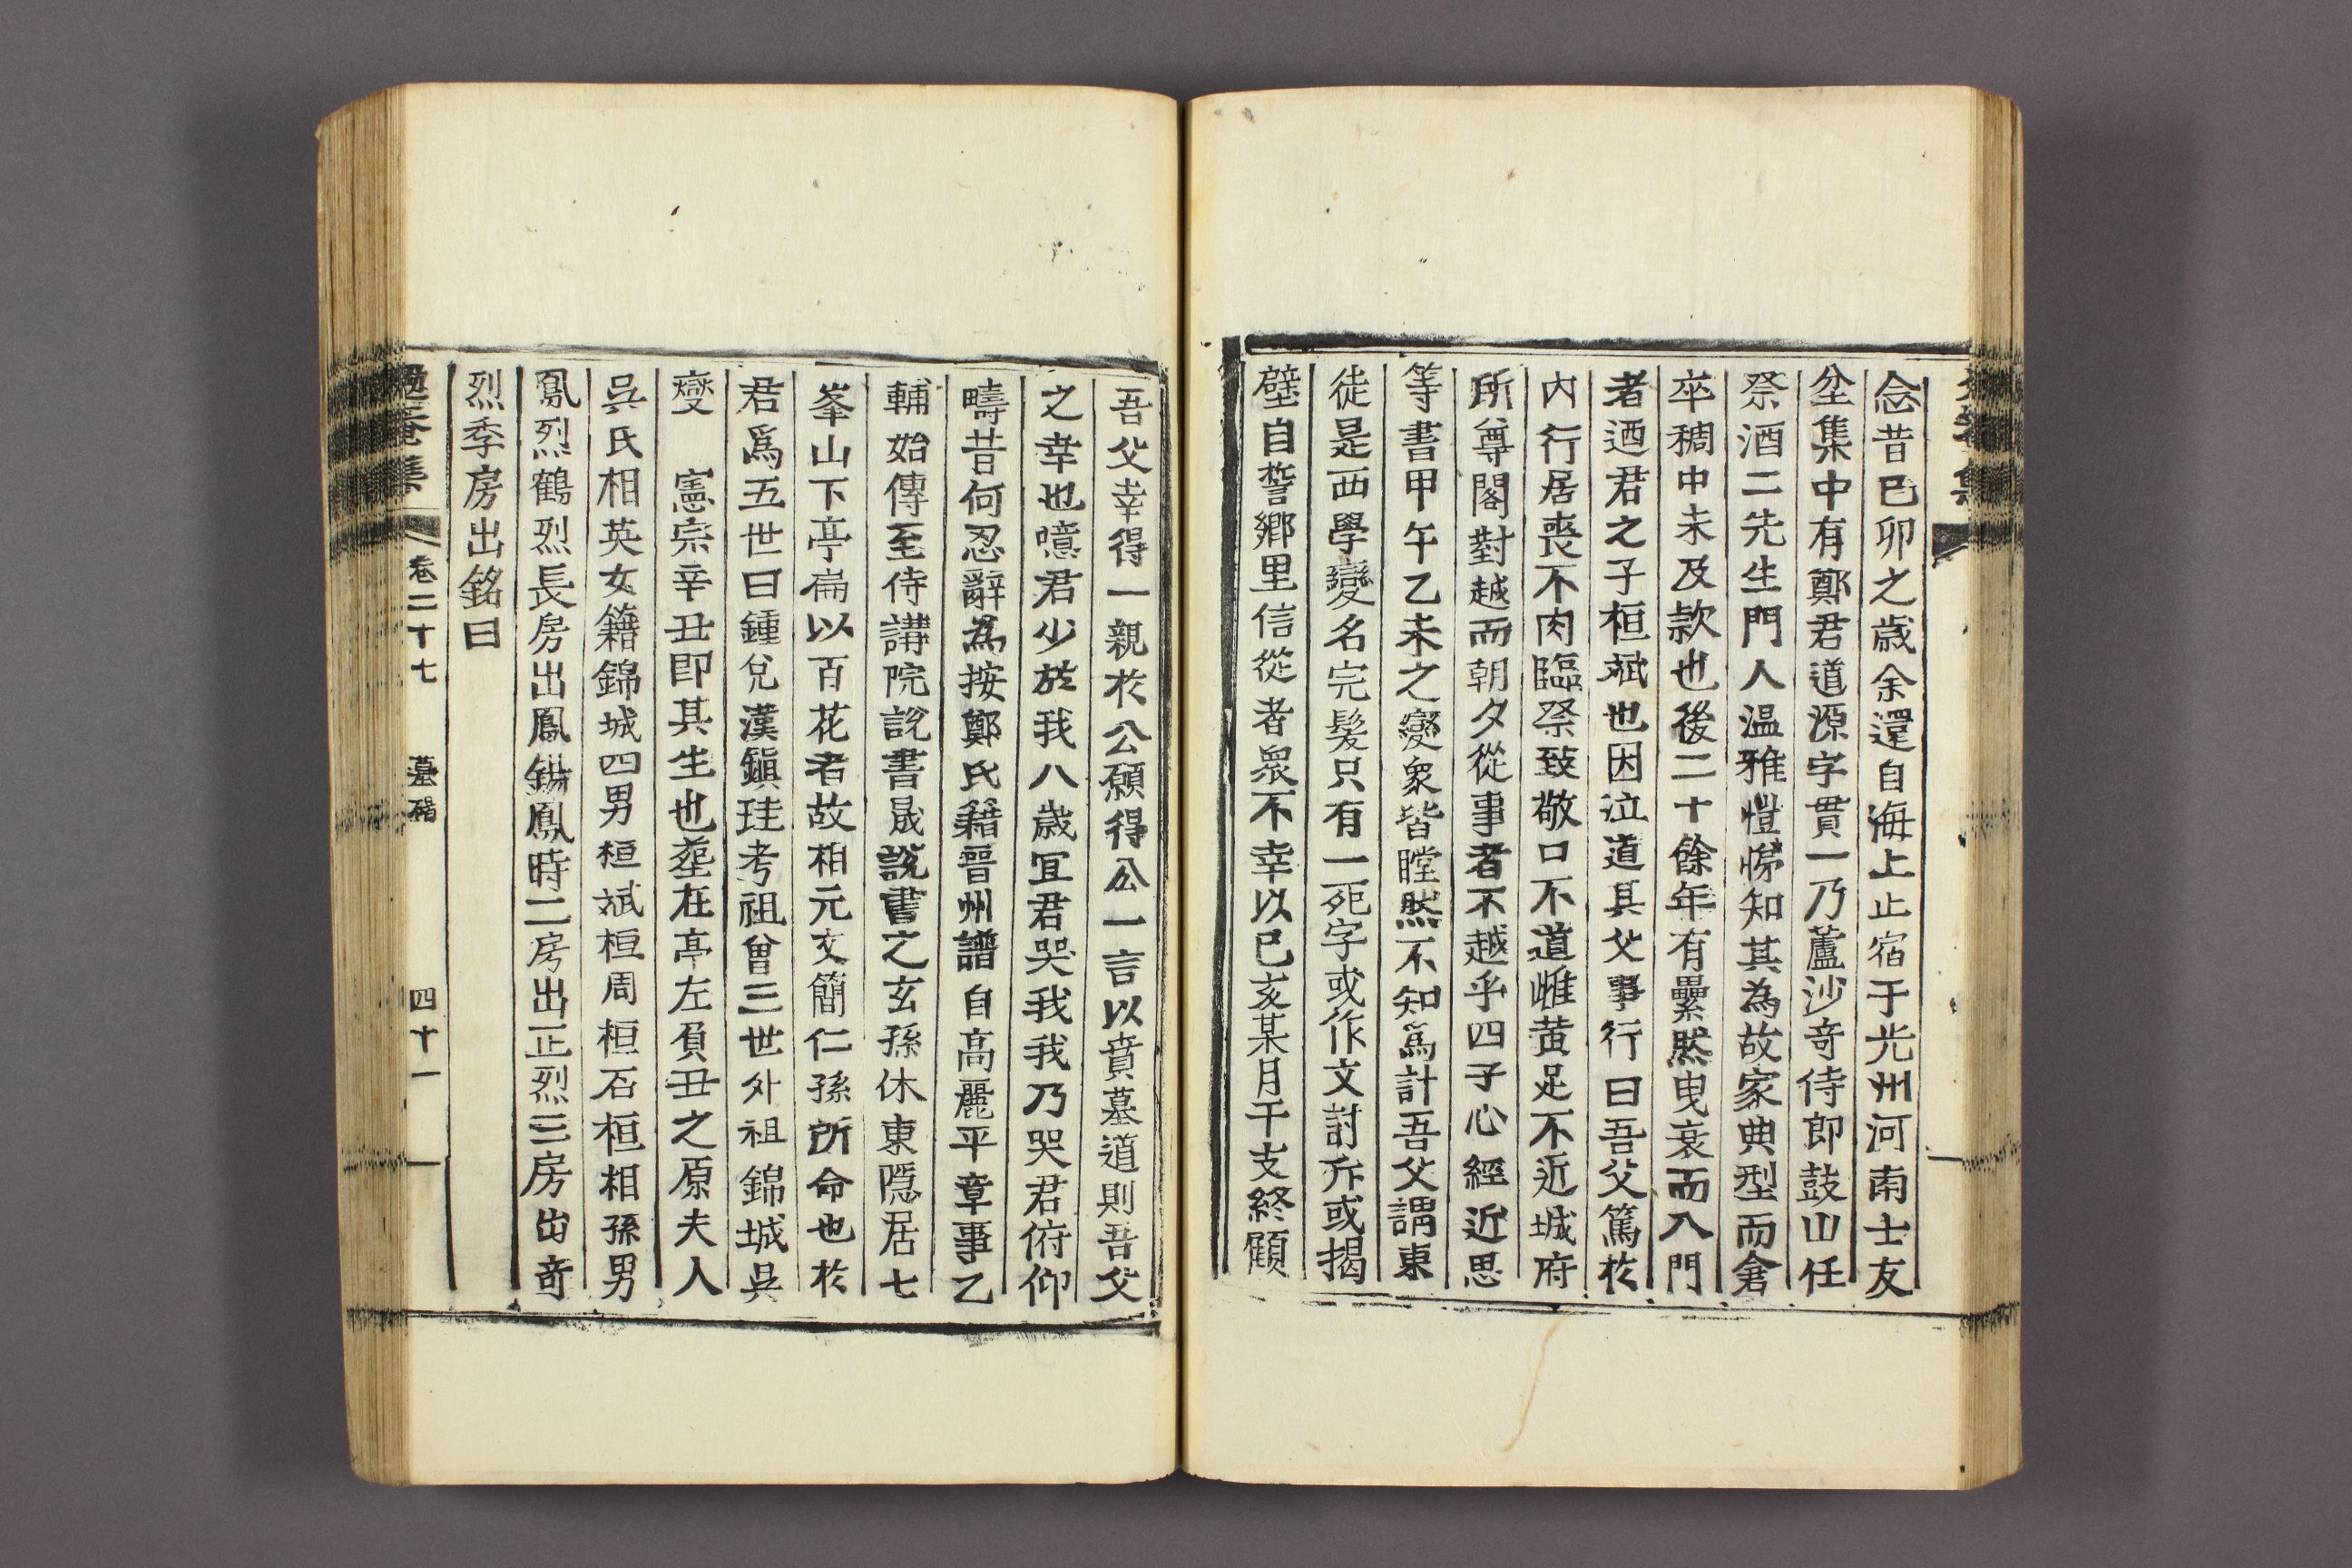 念昔巳卯之歲余還自海上止宿于光州河南士友
坌集中有鄭君道源字貫一乃蘆沙竒侍郎鼓山任
祭酒二先生門人温雅愷悌知其為故家典型而倉
卒稠中未及款也後二十餘年有纍然曳衰而入門
者迺君之子桓斌也因泣道其父事行曰吾父篤於
内行居喪不肉臨祭致敬口不道雌黄足不近城府
所尊閣對越而朝夕從事者不越乎四子心經近思
等書甲午乙未之變衆皆瞠然不知爲計吾父謂東
徒是西學變名完髮只有一死字或作文討斥或揭
壁自誓鄉里信從者衆不幸以已亥某月干支終顧
吾父幸得一親於公願得公一言以賁墓道則吾父
之幸也噫君少於我八歲宜君哭我我乃哭君俯仰
疇昔何忍辭為按鄭氏籍晋州譜自高麗平章事乙
輔始傳至侍講院說書晟說書之玄孫休東隱居七
峯山下亭扁以百花者故相元文簡仁孫所命也於
君爲五世曰鍾兌漢鎭珪考祖曾三世外祖錦城吳
燮 憲宗辛丑即其生也塟在亭左負丑之原夫人
吳氏相英女籍錦城四男桓斌桓周桓石桓相孫男
鳳烈鶴烈長房出鳳錫鳳時二房出正烈三房出竒
烈季房出銘曰
卷二十七 墓碣 四十一